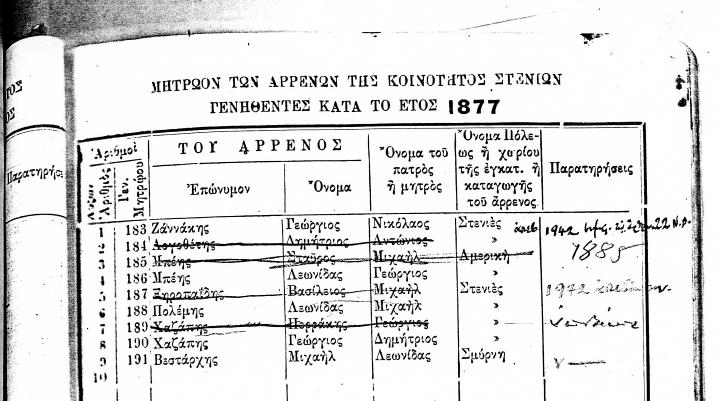 ΜΗΤΡΩΟΝ ΤΩΝ ΑΡΡΕΝΩΝ ΤΗΣ ΚΟΙΝΟΤΗΤΟΣ ΣΤΕΝΙΩΝ
ΓΕΝΗΘΕΝΤΕΣ ΚΑΤΑ ΤΟ ΕΤΟΣ 1877
Ἀριθμοὶ
Αὔξων Ἀριθμὸς
Γεν. Μητρῴου
ΤΟΥ ΑΡΡΕΝΟΣ
Ἐπώνυμον
Ὄνομα
Ὄνομα τοῦ
πατρὸς
ἢ μητρὸς
Ὄνομα Πόλε-
ως ἢ χωρίου
τῆς ἐγκατ. ἢ
καταγωγῆς
τοῦ ἄρρενος
Παρατηρήσεις
1 183 Ζάννάκης Γεώργιος Νικόλαος Στενιὲς 1942
2 184 Λογοθέτης Δημήτριος Ἀντώνιος » 1885
3 185 Μπέης Σταῦρος Μιχαὴλ Ἀμερικὴ
4 186 Μπέης Λεωνίδας Γεώργιος »
5 187 Ξηροπαΐδης Βασίλειος Μιχαὴλ Στενιὲς 1942
6 188 Πολέμης Λεωνίδας Μιχαὴλ »
7 189 Χαζάπης Πετράκης Γεώργιος »
8 190 Χαζάπης Γεώργιος Δημήτριος »
9 191 Βεστάρχης Μιχαὴλ Λεωνίδας Σμύρνη
10
ΤΟΣ
ΟΣ
Παρατηρήσε